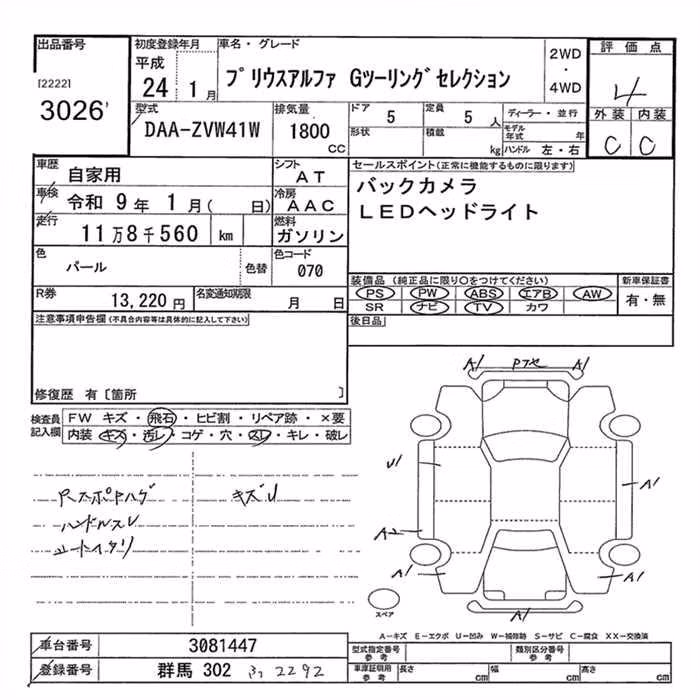 出品番号 初度登録年月 車名・グレード 2WD・4WD 評価点
[2222] 平成 24 1月 プリウスアルファ Gツーリングセレクション 4
3026 型式 排気量 ドア 5 定員 5人 ディーラー・並行 外装 内装
DAA-ZVW41W 1800 CC 形状 積載 kg モデル年式 年 ハンドル 左・右 C C
車歴 自家用 シフト AT セールスポイント(正常に機能するものに限ります)
車検 令和 9年 1月( 日) 冷房 AAC バックカメラ
走行 11万8千560 km 燃料 ガソリン LEDヘッドライト
色 パール 色替 色コード 070
装備品(純正品に限り〇をつけてください) 新車保証書
R券 13,220円 名変通知期限 月 日 PS PW ABS エアB AW 有・無
SR ナビ TV カワ
注意事項申告欄(不具合内容等は具体的に記入して下さい) 後日品
修復歴 有〔箇所 〕
検査員記入欄 FW キズ・飛石・ヒビ割・リペア跡・×要
内装 キズ・汚レ・コゲ・穴・スレ・キレ・破レ
A1 A1
U1 A1
キズU
ハンドルスレ
A2
A1 A1
A1
スペア
A-キズ E-エクボ U-凹み W-補修跡 S-サビ C-腐食 XX-交換済
車台番号 3081447 型式指定番号 参考 類別区分番号 参考
登録番号 群馬 302 ふ 2292 車庫証明用 参考 長さ cm 幅 cm 高さ cm